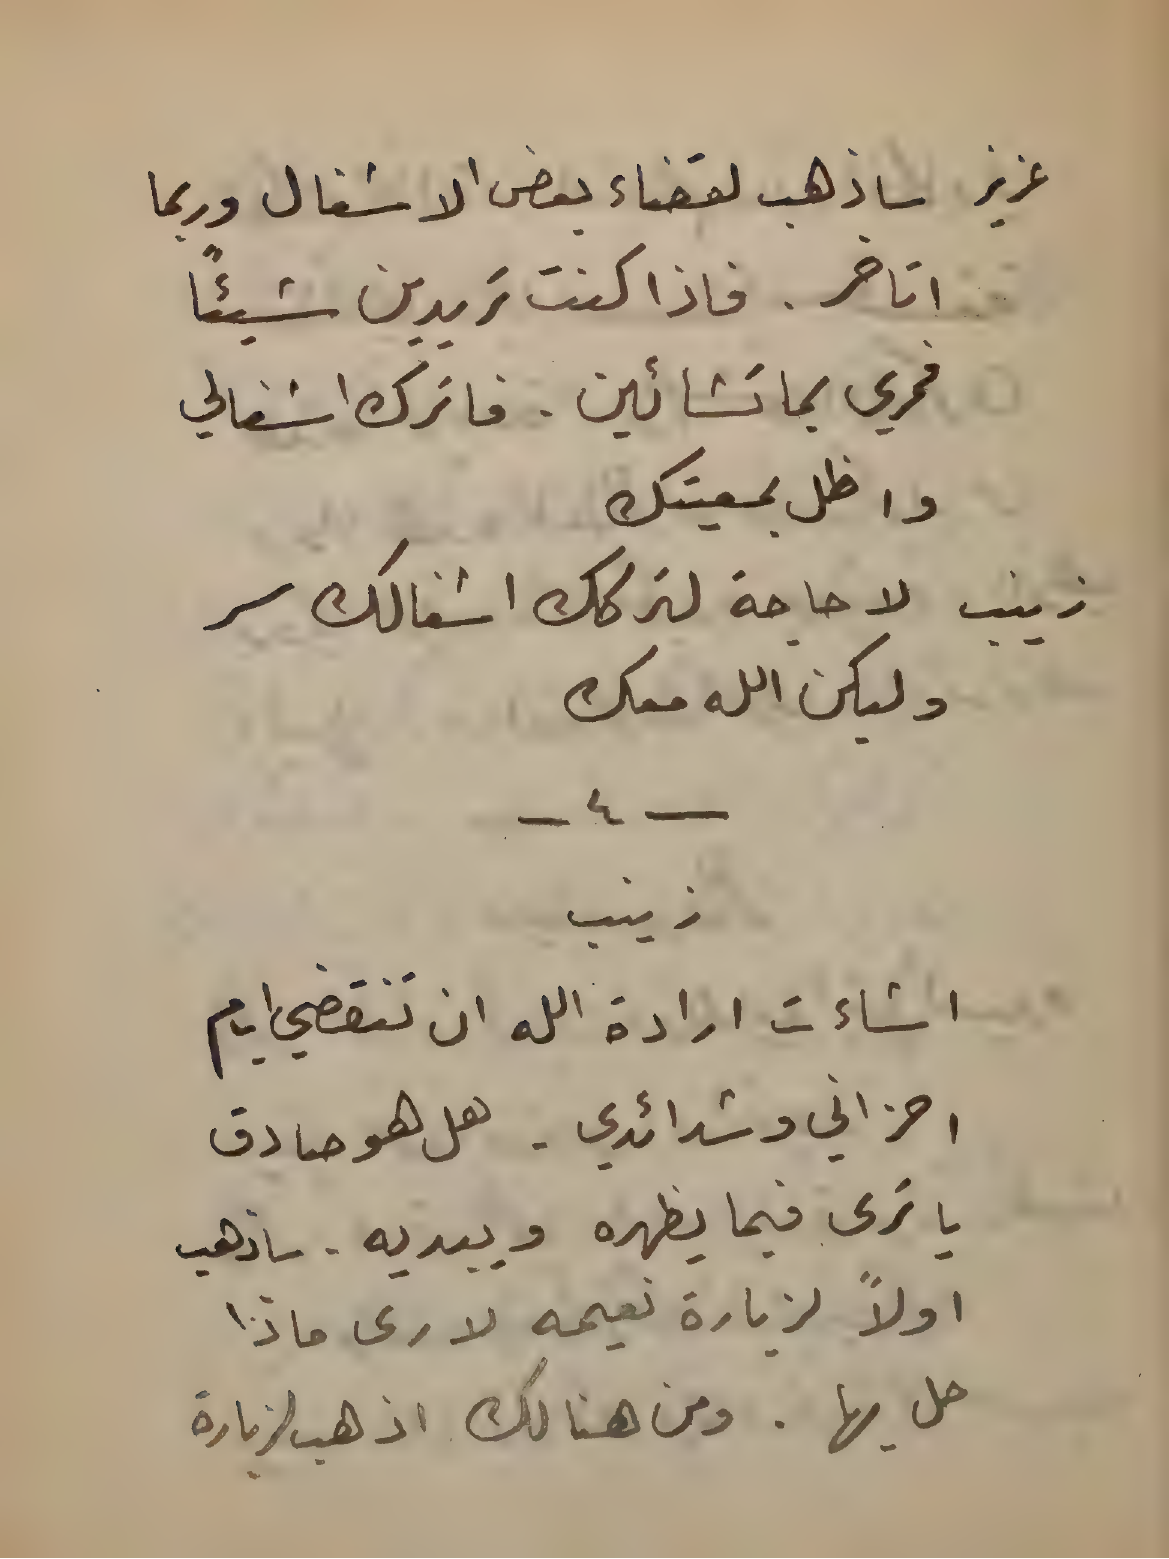 عزيز ساذهب لقضاء بعض الاشغال وربما
اتاخر . فاذا كنت تريدين شيئًا
فمري بما تشائين . فاترك اشغالي
واظل بمعيتك
زينب لا حاجة لتركك اشغالك سر
وليكن الله معك
— ٤ —
زينب
اشاءت ارادة الله ان تنقضي ايام
احزاني وشدائدي . هل هو صادق
يا ترى فيما يظهره ويبديه . ساذهب
اولاً لزيارة نعيمه لارى ماذا
حل بها . ومن هنالك اذهب لزيارة